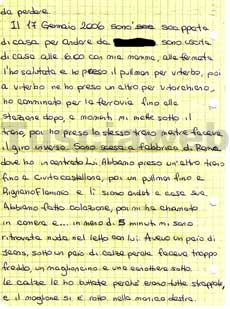 da perdere.
Il 17 Gennaio 2006 sono scappata
di casa per andare da sono uscita
di casa alle 6.00 con mia mamma, alla fermata
l'ho salutata e ho preso il pullman per viterbo, poi
a viterbo ne ho preso un altro per vitorchiano,
ho camminato per la ferrovia fino alla
stazione dopo, e mi sono messa sotto il
treno, poi ho preso lo stesso treno mentre faceva
il giro inverso. Sono scesa a fabbrica di Roma
dove ho incontrato lui. Abbiamo preso un'altro treno
fino a Civitacastellana, poi un pullman fino a
Rignano Flaminio e lì siamo andati a casa sua.
Abbiamo fatto colazione, poi mi ha chiamato
in camera e... in meno di 5 minuti mi sono
ritrovata nuda nel letto con lui. Avevo un paio di
jeans, sotto un paio di calze perché faceva troppo
freddo, un maglioncino e una canottiera sotto.
Le calze le ho buttate perché erano tutte strappate,
e il maglione si è rotto nella manica destra.